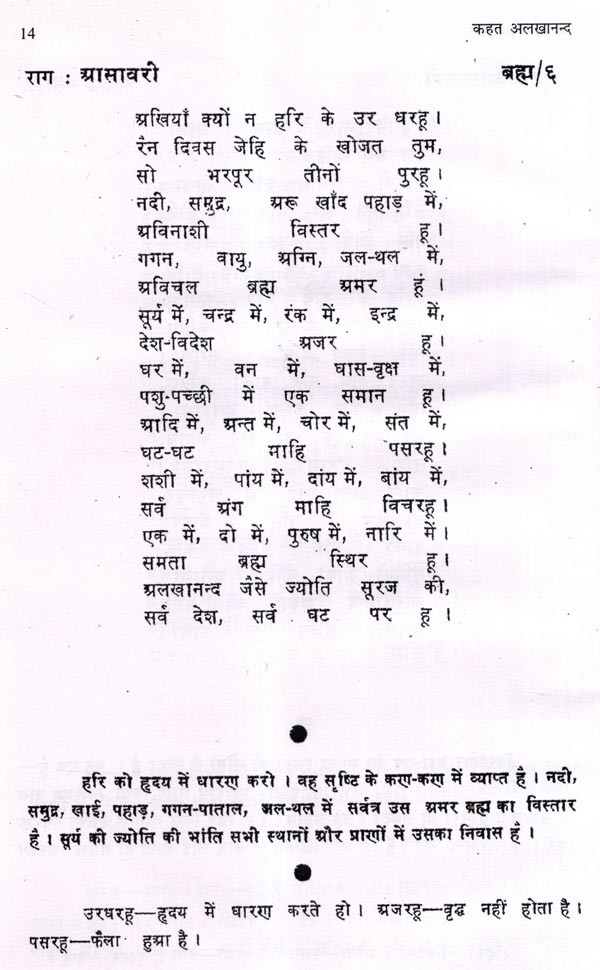 14 कहत अलखानन्द
राग : आसावरी ब्रह्म/६
अखियाँ क्यों न हरि के उर धरहू।
रैन दिवस जेहि के खोजत तुम,
सो भरपूर तीनों पुरहू।
नदी, समुद्र, अरू खाँद पहाड़ में,
अविनाशी विस्तर हू।
गगन, वायु, अग्नि, जल-थल में,
अविचल ब्रह्म अमर हूं।
सूर्य में, चन्द्र में, रंक में, इन्द्र में,
देश-विदेश अजर हू।
घर में, वन में, घास-वृक्ष में,
पशु-पच्छी में एक समान हू।
आदि में, अन्त में, चोर में, संत में,
घट-घट माहि पसरहू।
शशी में, पांय में, दांय में, बांय में,
सर्व अंग माहि विचरहू।
एक में, दो में, पुरुष में, नारि में।
समता ब्रह्म स्थिर हू।
अलखानन्द जैसे ज्योति सूरज की,
सर्व देश, सर्व घट पर हू।
हरि को हृदय में धारण करो। वह सृष्टि के कण-कण में व्याप्त है। नदी,
समुद्र, खाई, पहाड़, गगन-पाताल, जल-थल में सर्वत्र उस अमर ब्रह्म का विस्तार
है। सूर्य की ज्योति की भांति सभी स्थानों और प्राणों में उसका निवास है।
उरधरहू—हृदय में धारण करते हो। अजरहू—वृद्ध नहीं होता है।
पसरहू—फैला हुआ है।